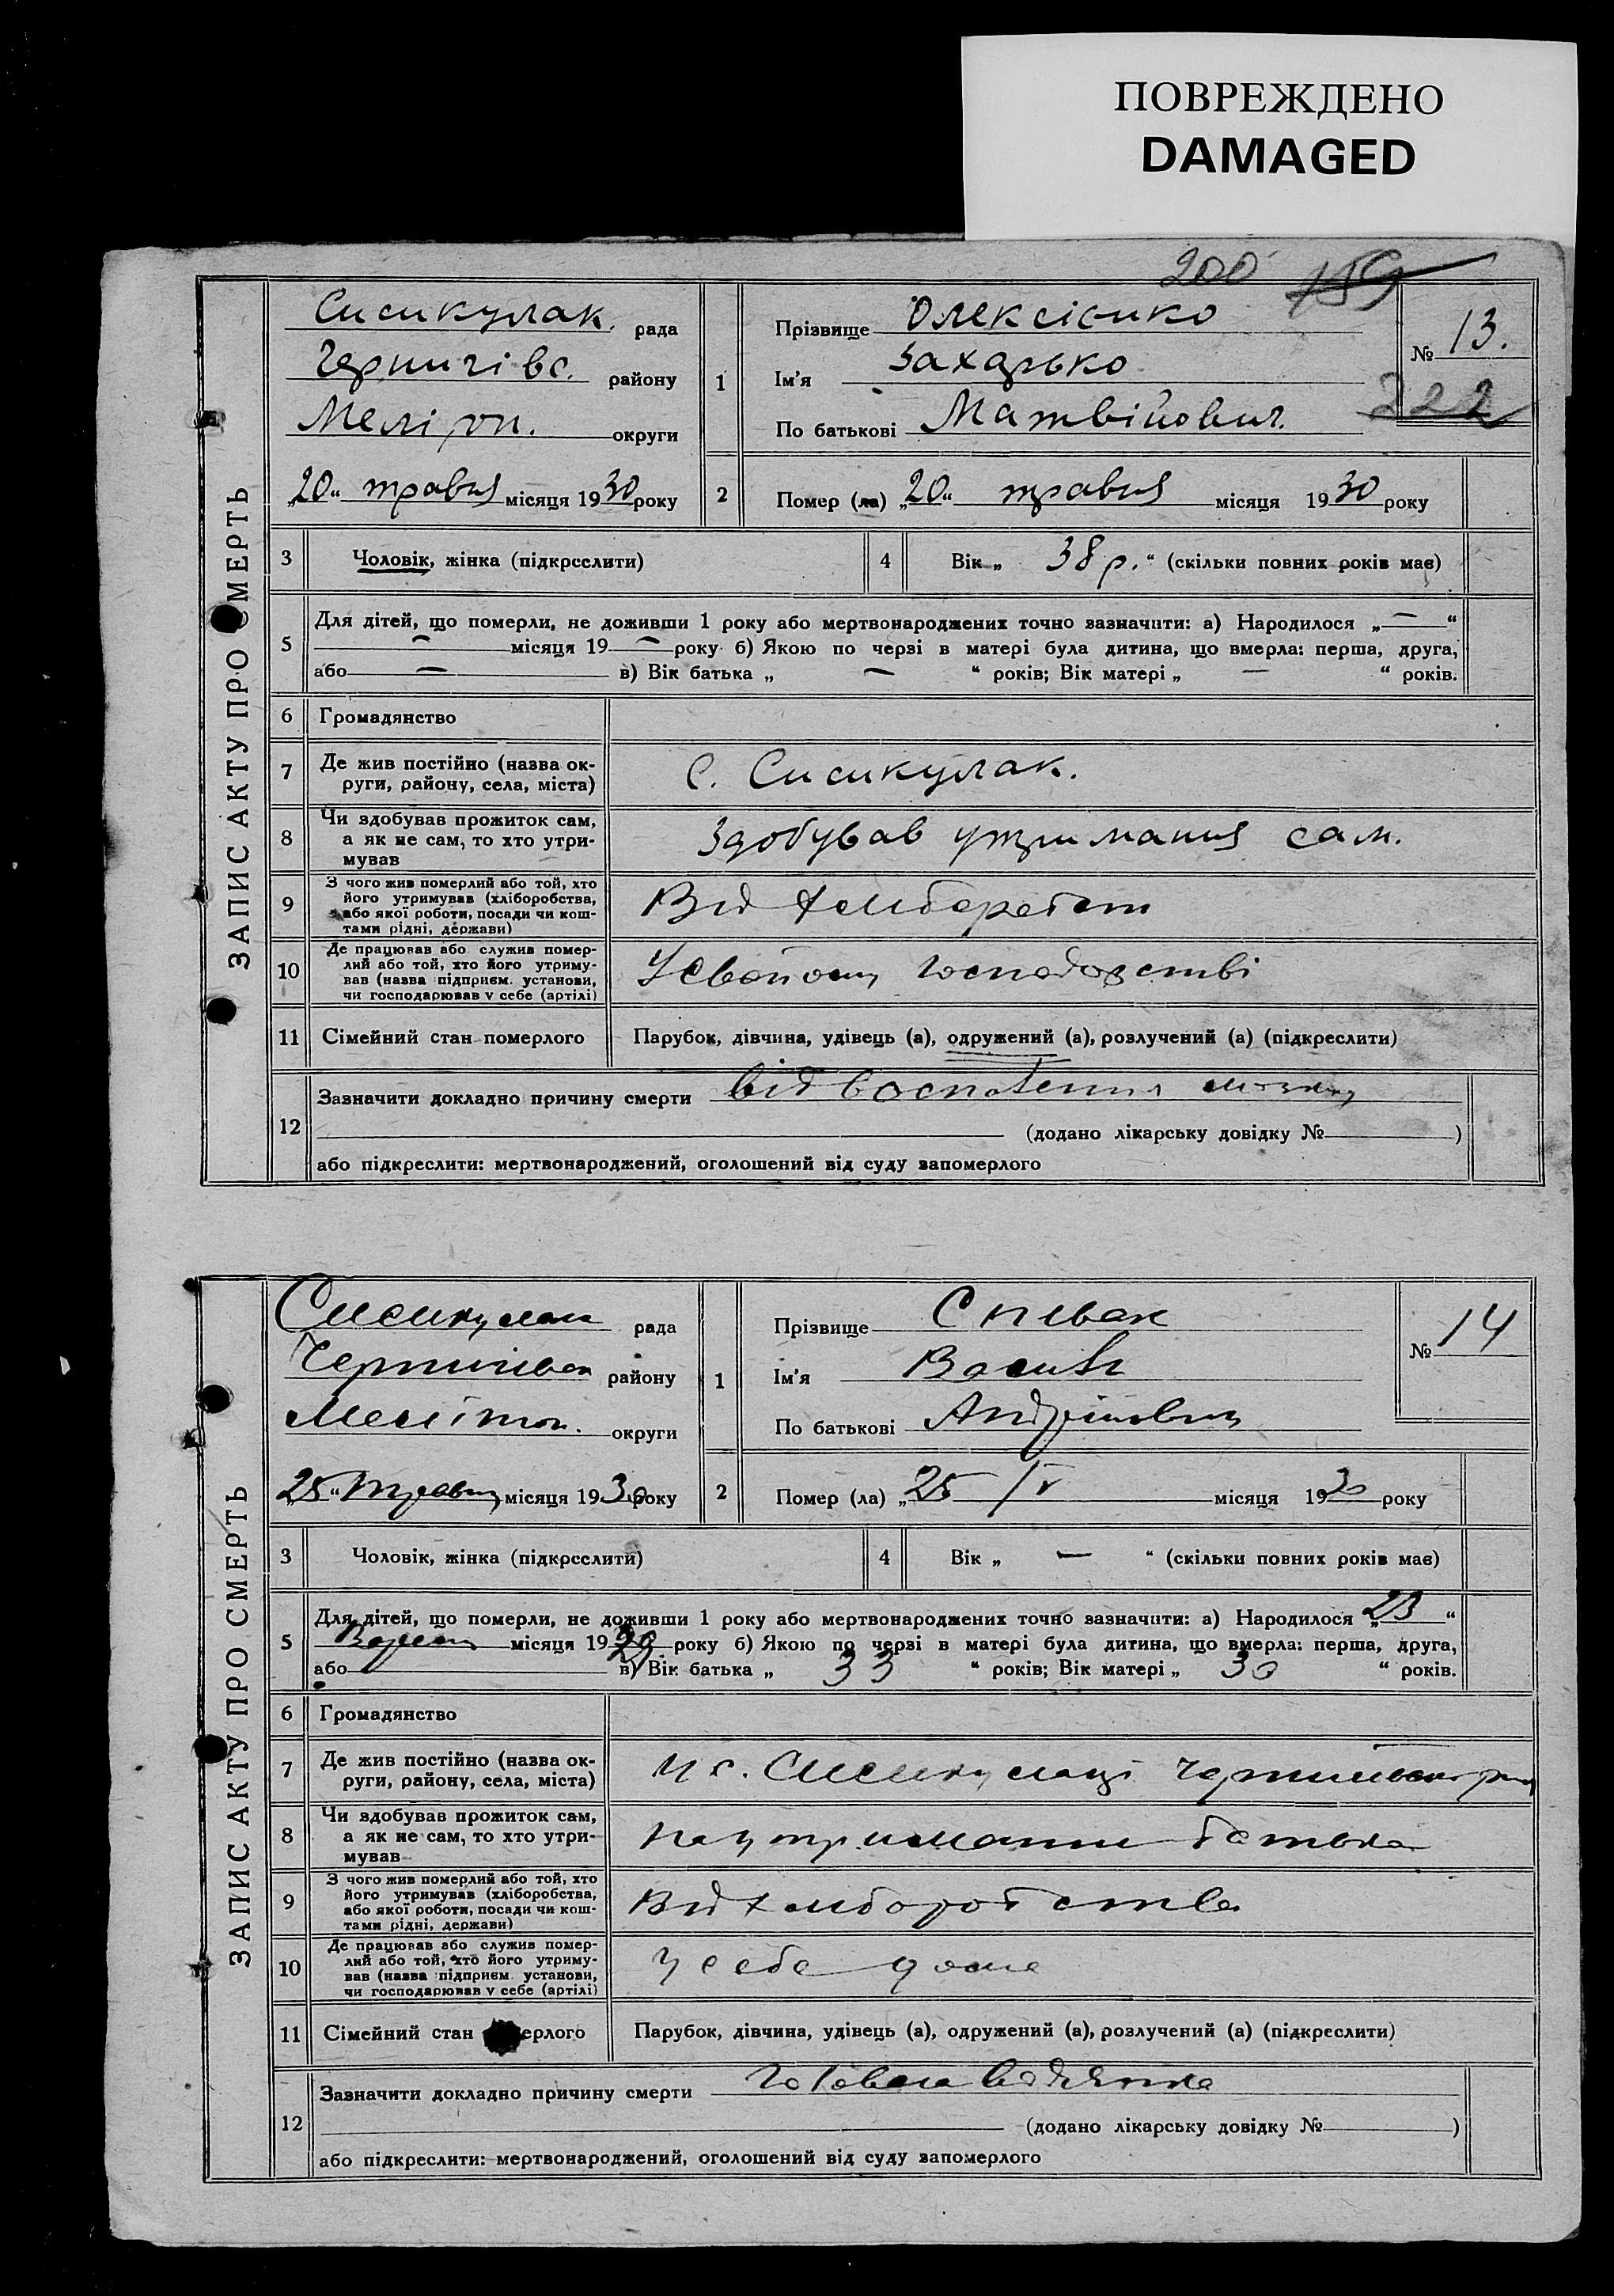 ПОВРЕЖДЕНО
DAMAGED
200 159
ЗАПИС АКТУ ПРО СМЕРТЬ
Сисикулак. рада
Чернигівс. району
Мелітоп. округи
„20“ травня місяця 1930 року
1
Прізвище Олексієнко
Ім'я Захарько
По батькові Матвійович.
№ 13.
222
2 Помер (ла) „20“ травня місяця 1930 року
3 Чоловік, жінка (підкреслити)
4 Вік „ 38 р. “ (скільки повних років має)
5 Для дітей, що померли, не доживши 1 року або мертвонароджених точно зазначити: а) Народилося „ — “
— місяця 19 — року б) Якою по черзі в матері була дитина, що вмерла: перша, друга,
або — в) Вік батька „ — “ років; Вік матері „ — “ років.
6 Громадянство
7 Де жив постійно (назва ок-
руги, району, села, міста)
С. Сисикулак.
8 Чи здобував прожиток сам,
а як не сам, то хто утри-
мував
Здобував утримання сам.
9 З чого жив померлий або той, хто
його утримував (хліборобства,
або якої роботи, посади чи кош-
тами рідні, держави)
Від
10 Де працював або служив помер-
лий або той, хто його утриму-
вав (назва підприєм. установи,
чи господарював у себе (артілі)
У своїому господарстві
11 Сімейний стан померлого
Парубок, дівчина, удівець (а), одружений (а), розлучений (а) (підкреслити)
12 Зазначити докладно причину смерти від воспаления мозку
(додано лікарську довідку № )
або підкреслити: мертвонароджений, оголошений від суду запомерлого
ЗАПИС АКТУ ПРО СМЕРТЬ
Сисикулак рада
Чернигівск району
Мелітоп. округи
„25“ травня місяця 1930 року
1
Прізвище Спивак
Ім'я Василь
По батькові Андрійович
№ 14
2 Помер (ла) „25 /V місяця 1930 року
3 Чоловік, жінка (підкреслити)
4 Вік „ — “ (скільки повних років має)
5 Для дітей, що померли, не доживши 1 року або мертвонароджених точно зазначити: а) Народилося „23“
місяця 1929 року б) Якою по черзі в матері була дитина, що вмерла: перша, друга,
або в) Вік батька „ 33 “ років; Вік матері „ 30 “ років.
6 Громадянство
7 Де жив постійно (назва ок-
руги, району, села, міста)
У с. Сисикулаці
8 Чи здобував прожиток сам,
а як не сам, то хто утри-
мував
На утриманні батька
9 З чого жив померлий або той, хто
його утримував (хліборобства,
або якої роботи, посади чи кош-
тами рідні, держави)
Від хлиборобства
10 Де працював або служив помер-
лий або той, хто його утриму-
вав (назва підприєм. установи,
чи господарював у себе (артілі)
У себе дома
11 Сімейний стан ерлого
Парубок, дівчина, удівець (а), одружений (а), розлучений (а) (підкреслити)
12 Зазначити докладно причину смерти Головна водянка
(додано лікарську довідку № )
або підкреслити: мертвонароджений, оголошений від суду запомерлого